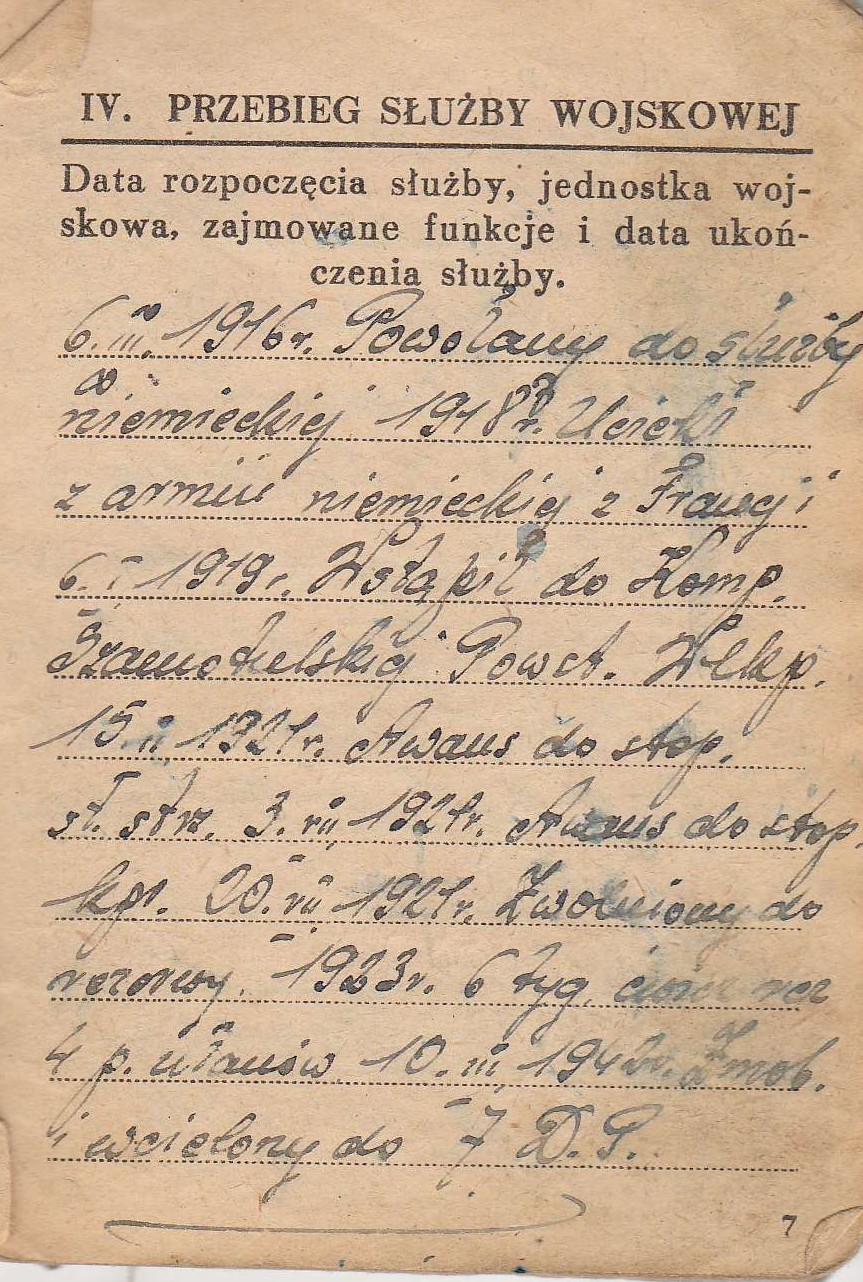 IV. PRZEBIEG SŁUŻBY WOJSKOWEJ
Data rozpoczęcia służby, jednostka woj-
skowa, zajmowane funkcje i data ukoń-
czenia służby.
6. III. 1916 r. Powołany do służby
niemieckiej 1918 r. Uciekł
z armii niemieckiej z Francji
6. I. 1919 r. Wstąpił do Komp.
Szamotulskiej Powst. Wlkp.
15. II. 1921 r. Awans do stop.
st. strz. 3. VII. 1921 r. Awans do stop.
kpr. 20. VII. 1921 r. Zwolniony do
rezerwy. 1923 r. 6 tyg. rez
4 p. ułanów 10. III. Zmob.
i wcielony do 7 D. P.
7